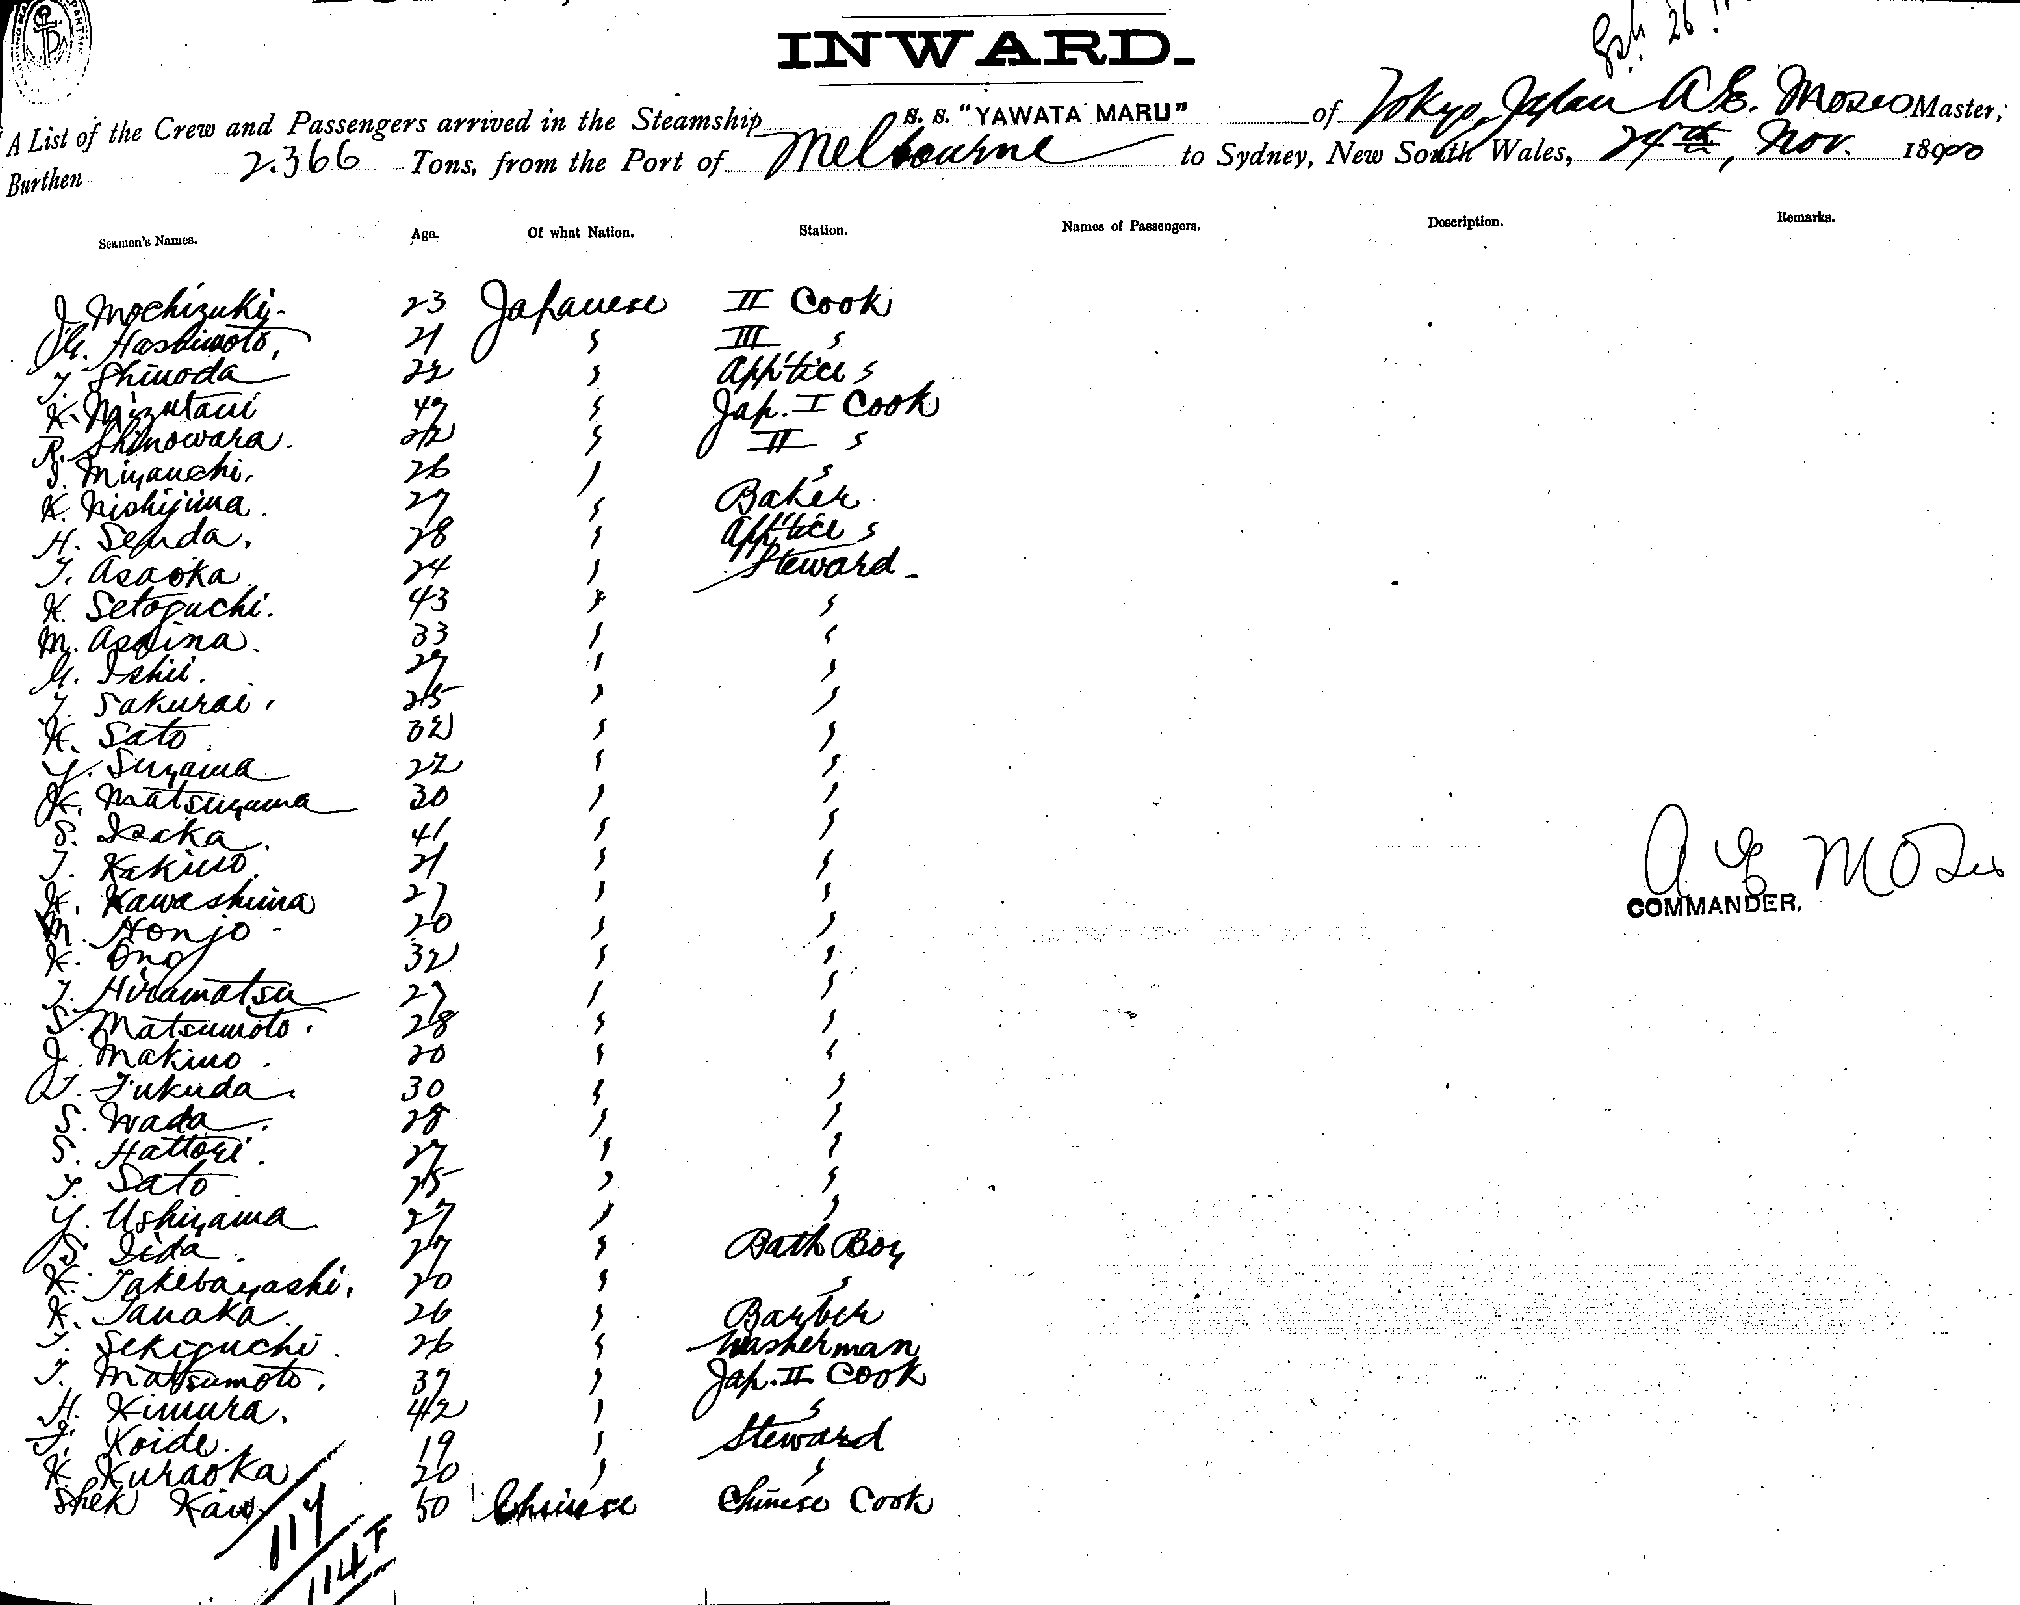 INWARD.
A List of the Crew and Passengers arrived in the Steamship S. S. "YAWATA MARU" of Tokyo, Japan A E. Moses Master,
Burthen 2.366 Tons, from the Port of Melbourne to Sydney, New South Wales, 24th, Nov. 1900
Seamen's Names. Age. Of what Nation. Station. Names of Passengers. Description. Remarks.
J. Mochizuki. 23 Japanese II Cook
G. Hashimoto. 21 " III "
T. Shinoda 22 " App'tice "
K. Mizutani 47 " Jap. I Cook
R. Shinowara. 22 " II "
S. Miyauchi. 26 " "
K. Nishijima. 27 " Baker
H. Senda. 28 " App'tice "
T. Asaoka 24 " Steward
K. Setoguchi. 43 " "
M. Asaina. 33 " "
G. Ishii. 27 " "
T. Sakurai. 25 " "
K. Sato 32 " "
Y. Suyama 22 " "
K. Matsuyama 30 " "
S. Isaka. 41 " "
T. Kakino 21 " "
K. Kawashima 27 " "
M. Honjo 20 " "
K. Ono 32 " "
T. Hiramatsu 27 " "
S. Matsumoto. 28 " "
J. Makino. 20 " "
T. Fukuda. 30 " "
S. Wada. 28 " "
S. Hattori. 27 " "
T. Sato 25 " "
Y. Ushiyama 27 " "
S. Iida. 27 " Bath Boy
K. Takebayashi. 20 " "
K. Tanaka. 26 " Barber
T. Sekiguchi. 26 " Washerman
T. Matsumoto. 37 " Jap. II Cook
H. Kimura. 42 " "
F. Koide. 19 " Steward
K. Kuraoka 20 " "
Shek Kaw. 50 Chinese Chinese Cook
A E Moses
COMMANDER.
114
114 F